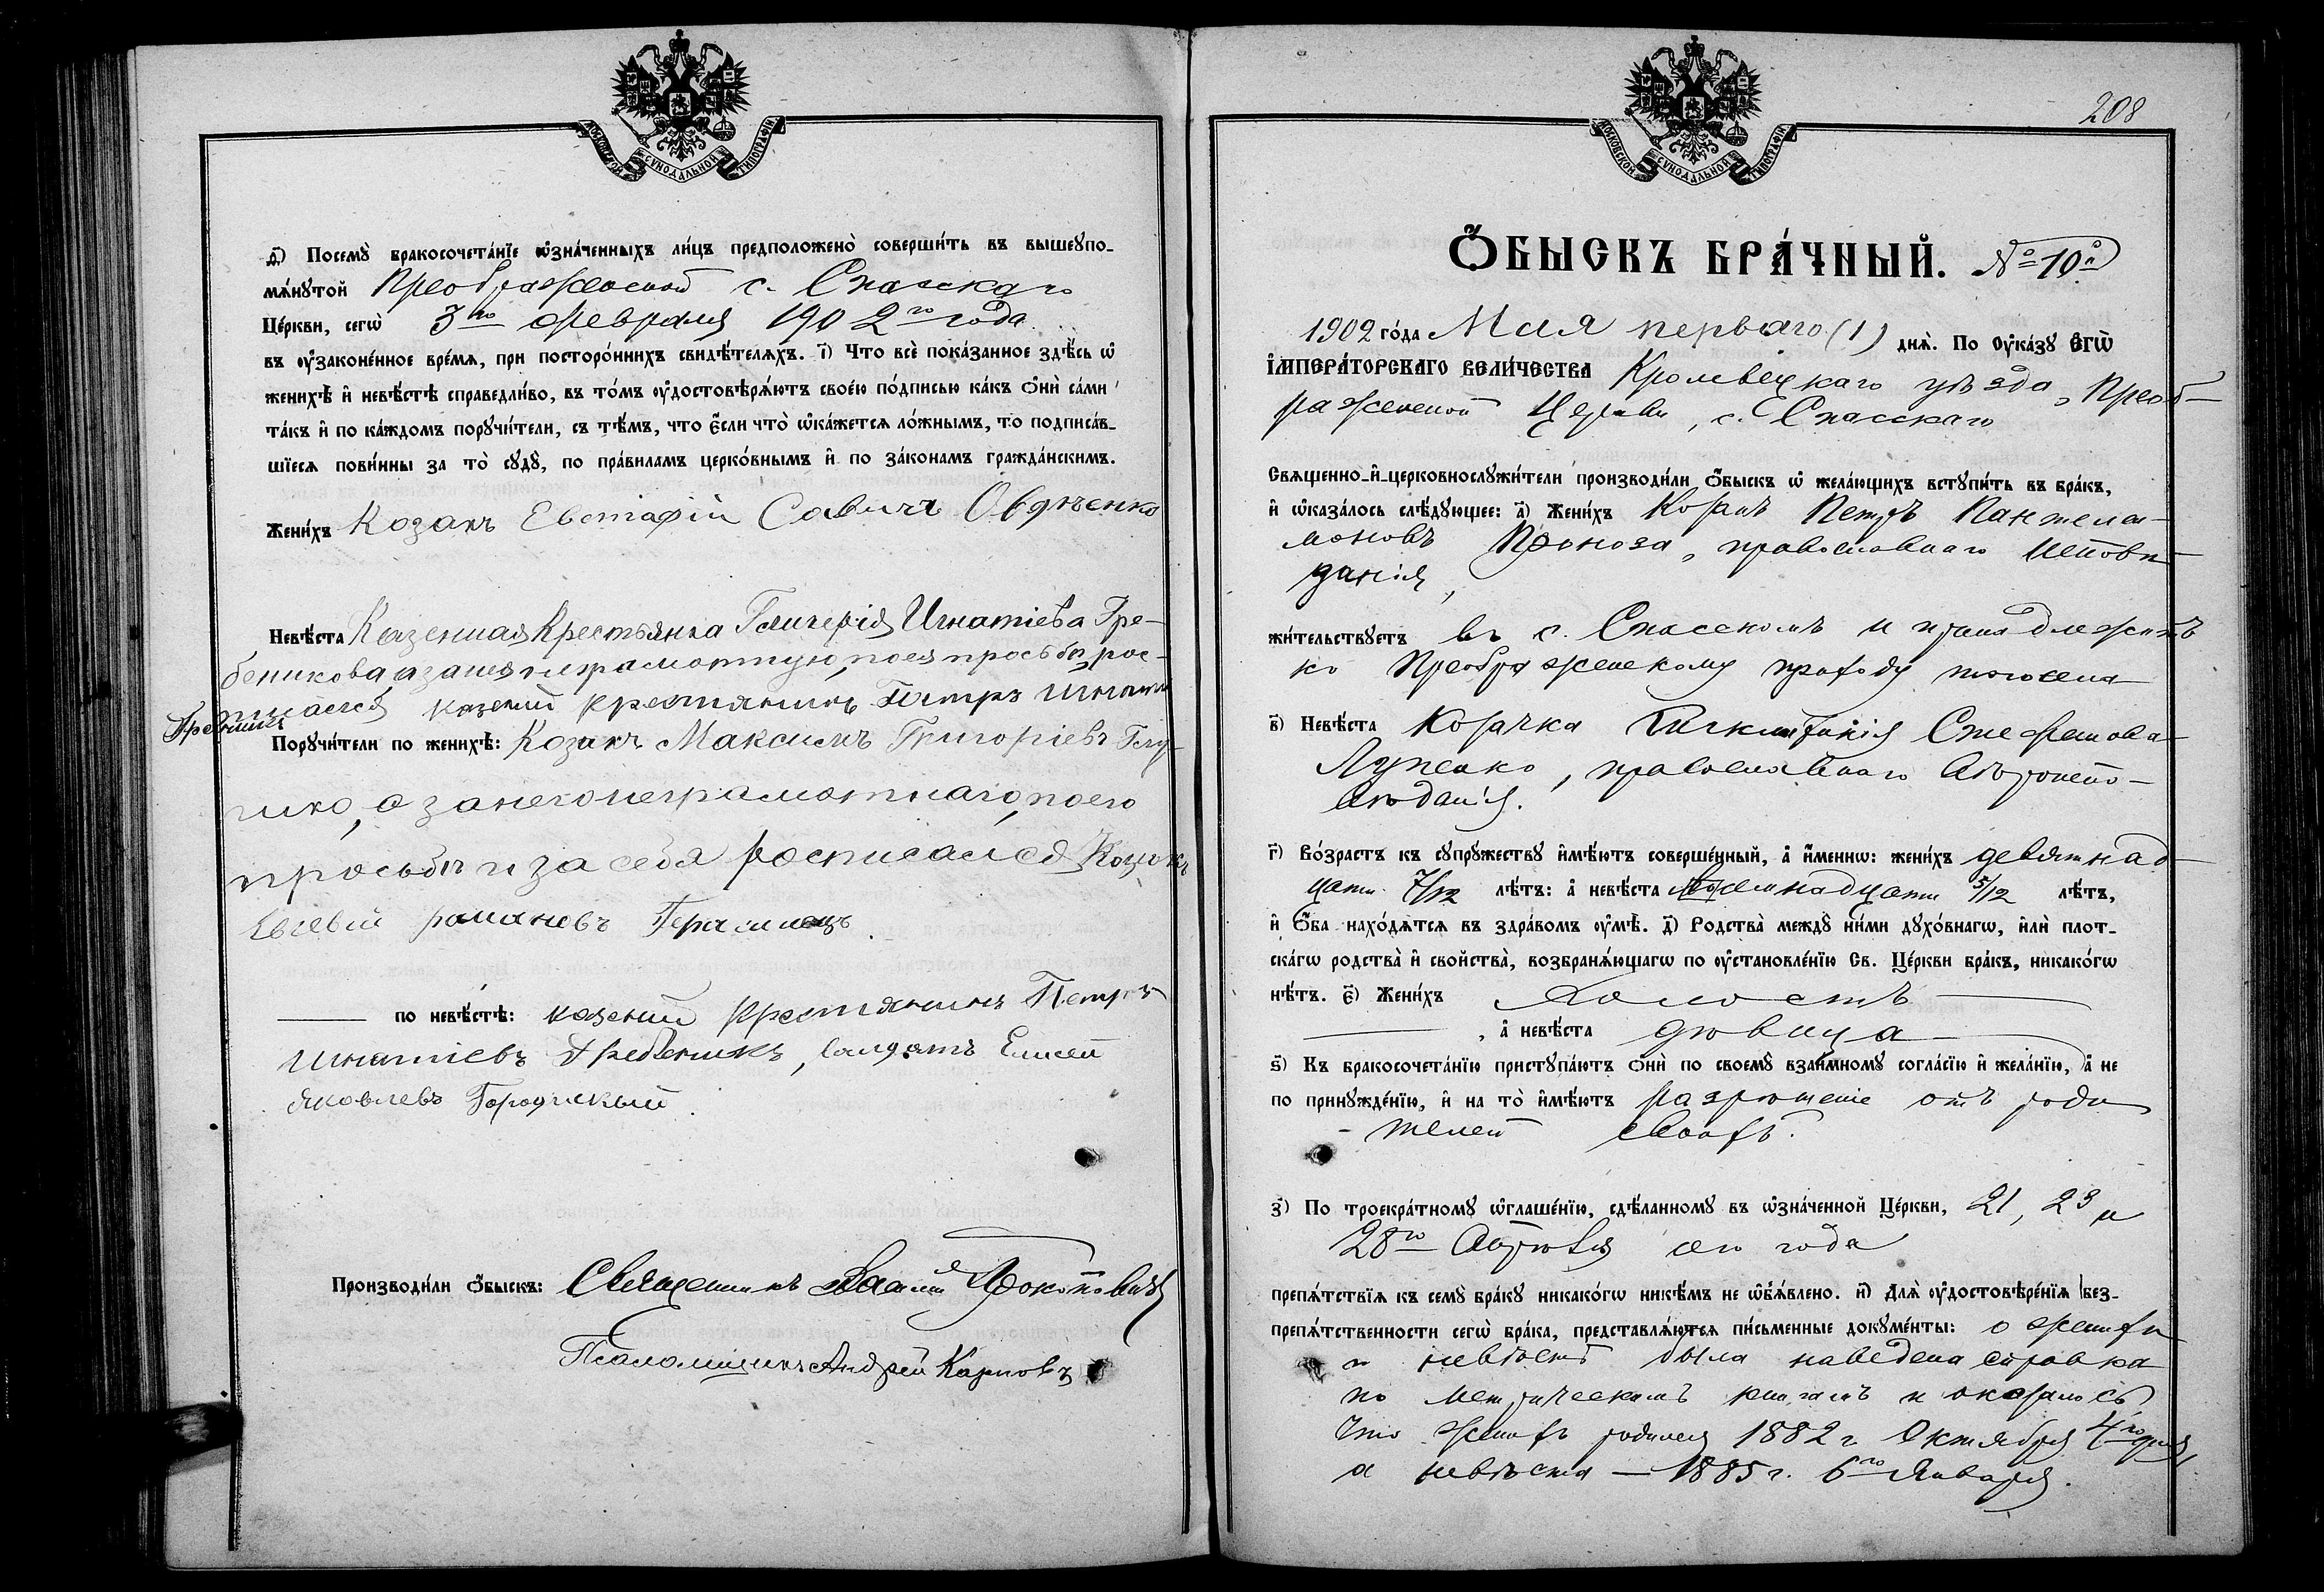 МОСКОВСКОЙ СѴНОДАЛЬНОЙ ТИПОГРАФІИ
д҃і) Посемꙋ̀ бракосочета́нїе ѡ҆зна́ченныхъ ли́цъ предположено̀ соверши́ть въ вышеꙋпо-
мѧ́нꙋтой Преображенской с. Спасскаго
Це́ркви, сегѡ̀ 3го февраля 1902го года
въ ᲂу҆зако́ненное вре́мѧ, при посторо́ннихъ свидѣ́телѧхъ. і҃) Что всѐ пока́занное здѣ́сь ѡ҆
женихѣ̀ и҆ невѣ́стѣ справедли́во, въ то́мъ ᲂу҆достовѣрѧ́ютъ свое́ю по́дписью ка́къ ѻ҆нѝ са́ми
та́къ и҆ по ка́ждомъ порꙋчи́тели, съ тѣ́мъ, что є҆́сли что̀ ѡ҆ка́жетсѧ ло́жнымъ, то подписа́в-
шїесѧ пови́нны за то̀ сꙋдꙋ̀, по пра́виламъ церко́внымъ и҆ по зако́намъ гражда́нскимъ.
Жени́хъ Козакъ Евстафій Савичъ Овдѣенко
Невѣ́ста Казенная Крестьянка Гликерія Игнатіева Гре-
беникова, а за нея неграмотную, по ея просьбѣ рос-
писался казеный крестянинъ Петръ Игнатиев
Гребеникъ
Порꙋчи́тели по женихѣ̀: Козакъ Максимъ Григоріевъ Глу-
шко, а за него неграмотнаго, по его
просьбѣ и за себя росписался Козакъ
Евсевій романовъ Герасимецъ.
по невѣ́стѣ: казеный крестянинъ Петръ
Игнатіевъ Гребеникъ, Солдатъ Елисей
Яковлевъ Городискый.
Производи́ли ѻ҆́быскъ: Священникъ Василій
Псаломщикъ Андрей Карповъ
208
МОСКОВСКОЙ СѴНОДАЛЬНОЙ ТИПОГРАФІИ
Ѻ҆́БЫСКЪ БРА́ЧНЫЙ. № 10й
1902 го́да Мая перваго (1) днѧ̀. По Оу҆ка́зꙋ Е҆гѡ̀
І҆мпера́торскаго Вели́чества Кролевецкаго уѣзда, Преоб-
раженской Церкви, с. Спасскаго
Свѧщенно-и҆-церковнослꙋжи́тели производи́ли ѻ҆́быскъ ѡ҆ жела́ющихъ встꙋпи́ть въ бра́къ,
и҆ ѡ҆каза́лось слѣ́дꙋющее: а҃) Жени́хъ Козакъ Петръ Пантелей-
моновъ Проноза, православнаго исповѣ-
данія,
жи́тельствꙋетъ въ с. Спасскомъ и принадлежитъ
ко Преображенскому приходу того села
в҃) Невѣ́ста Козачка Стефанова
Луценко, православнаго вѣроиспо-
вѣданія.
г҃) Во́зрастъ къ сꙋпрꙋ́жествꙋ и҆мѣ́ютъ соверше́нный, а҆ и҆́меннѡ: жени́хъ девятнад-
цати 7/12 лѣ́тъ: а҆ невѣ́ста восемнадцати 5/12 лѣ́тъ,
и҆ ѻ҆́ба нахо́дѧтсѧ въ здра́вомъ ᲂу҆мѣ̀. д҃) Родства̀ междꙋ̀ ни́ми дꙋхо́внагѡ, и҆лѝ плот-
ска́гѡ родства̀ и҆ сво́йства̀, возбранѧ́ющагѡ по ᲂу҆становле́нїю Св. Це́ркви бра́къ, никако́гѡ
нѣ́тъ. є҃) Жени́хъ Холостъ
, а҆ невѣ́ста дѣвица
ѕ҃) Къ бракосочета́нїю пристꙋпа́ютъ ѻ҆нѝ по своемꙋ̀ взаи́мномꙋ согла́сїю и҆ жела́нїю, а҆ не
по принꙋжде́нїю, и҆ на то̀ и҆мѣ́ютъ разрѣшеніе отъ роди
телей своихъ.
з҃) По троекра́тномꙋ ѡ҆глаше́нїю, сдѣ́ланномꙋ въ ѡ҆зна́ченной Це́ркви, 21, 23 и
28го Апрѣля сего года
препѧ́тствїѧ къ семꙋ̀ бра́кꙋ никако́гѡ никѣ́мъ не ѡ҆б̾ѧ́влено. и҃) Длѧ̀ ᲂу҆достовѣре́нїѧ без-
препѧ́тственности сегѡ̀ бра́ка, представлѧ́ютсѧ пи́сьменные докꙋме́нты: о женихѣ
и невѣстѣ была наведена справка
по метрическимъ книгамъ и оказалось
что женихъ родился 1882 г. Октября 4го дня,
а невѣста — 1885 г. 6го Января.